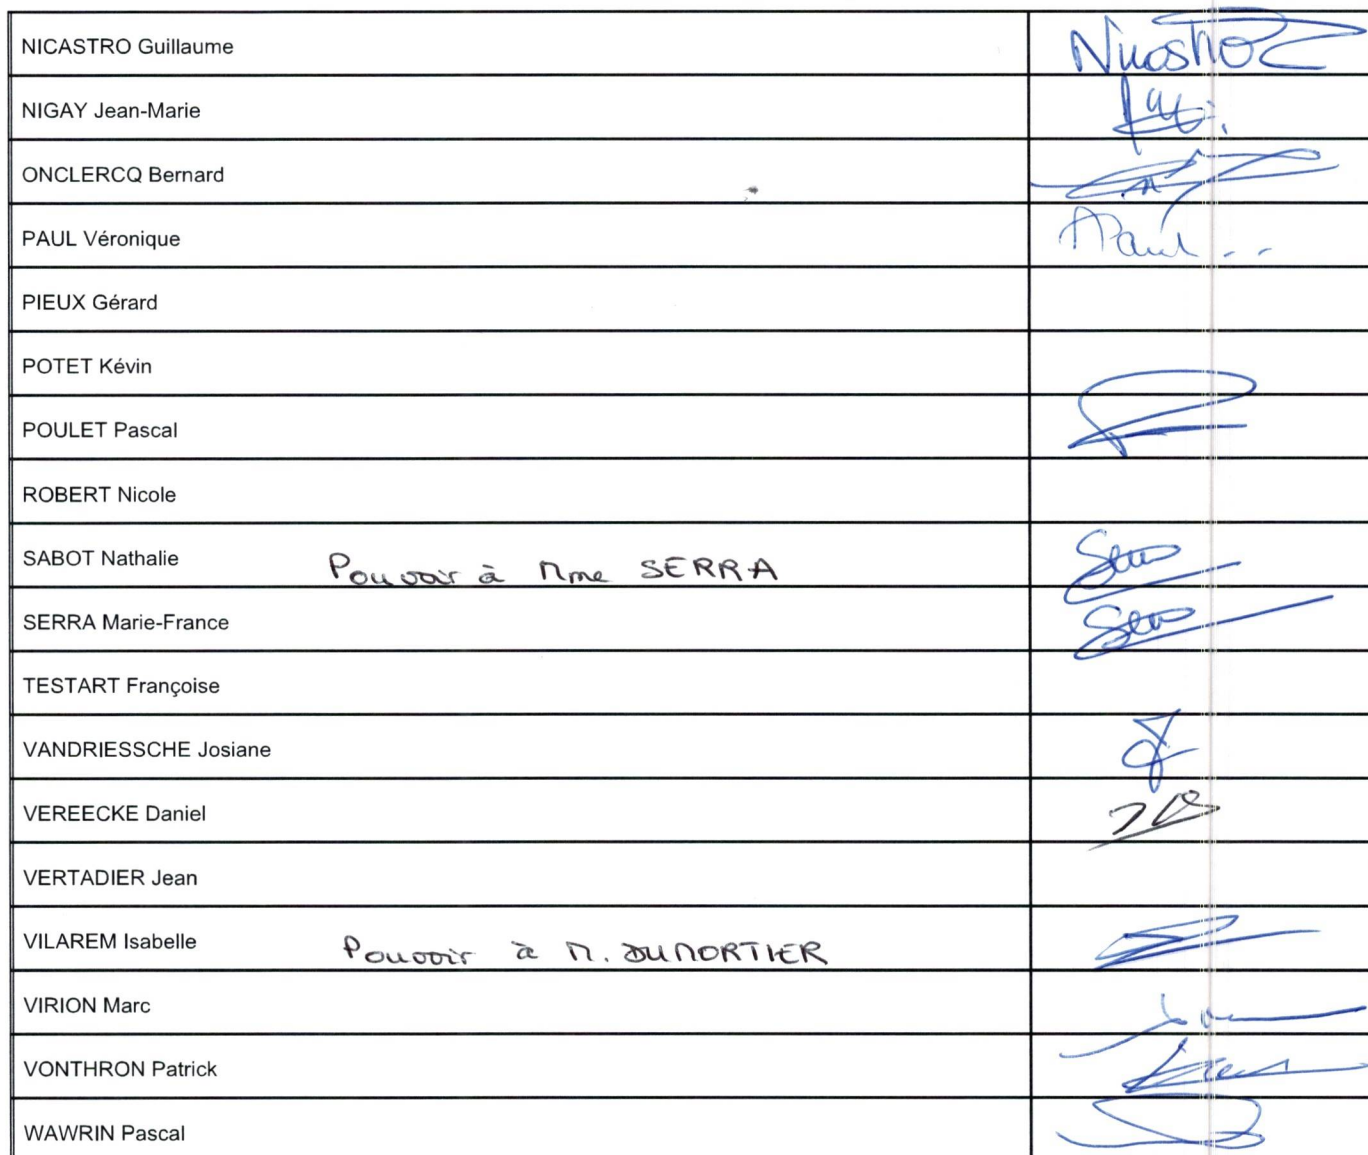 NICASTRO Guillaume Nicastro
NIGAY Jean-Marie
ONCLERCQ Bernard
PAUL Véronique Paul
PIEUX Gérard
POTET Kévin
POULET Pascal
ROBERT Nicole
SABOT Nathalie Pouvoir à Mme SERRA
SERRA Marie-France
TESTART Françoise
VANDRIESSCHE Josiane
VEREECKE Daniel
VERTADIER Jean
VILAREM Isabelle Pouvoir à M. DUMORTIER
VIRION Marc
VONTHRON Patrick
WAWRIN Pascal